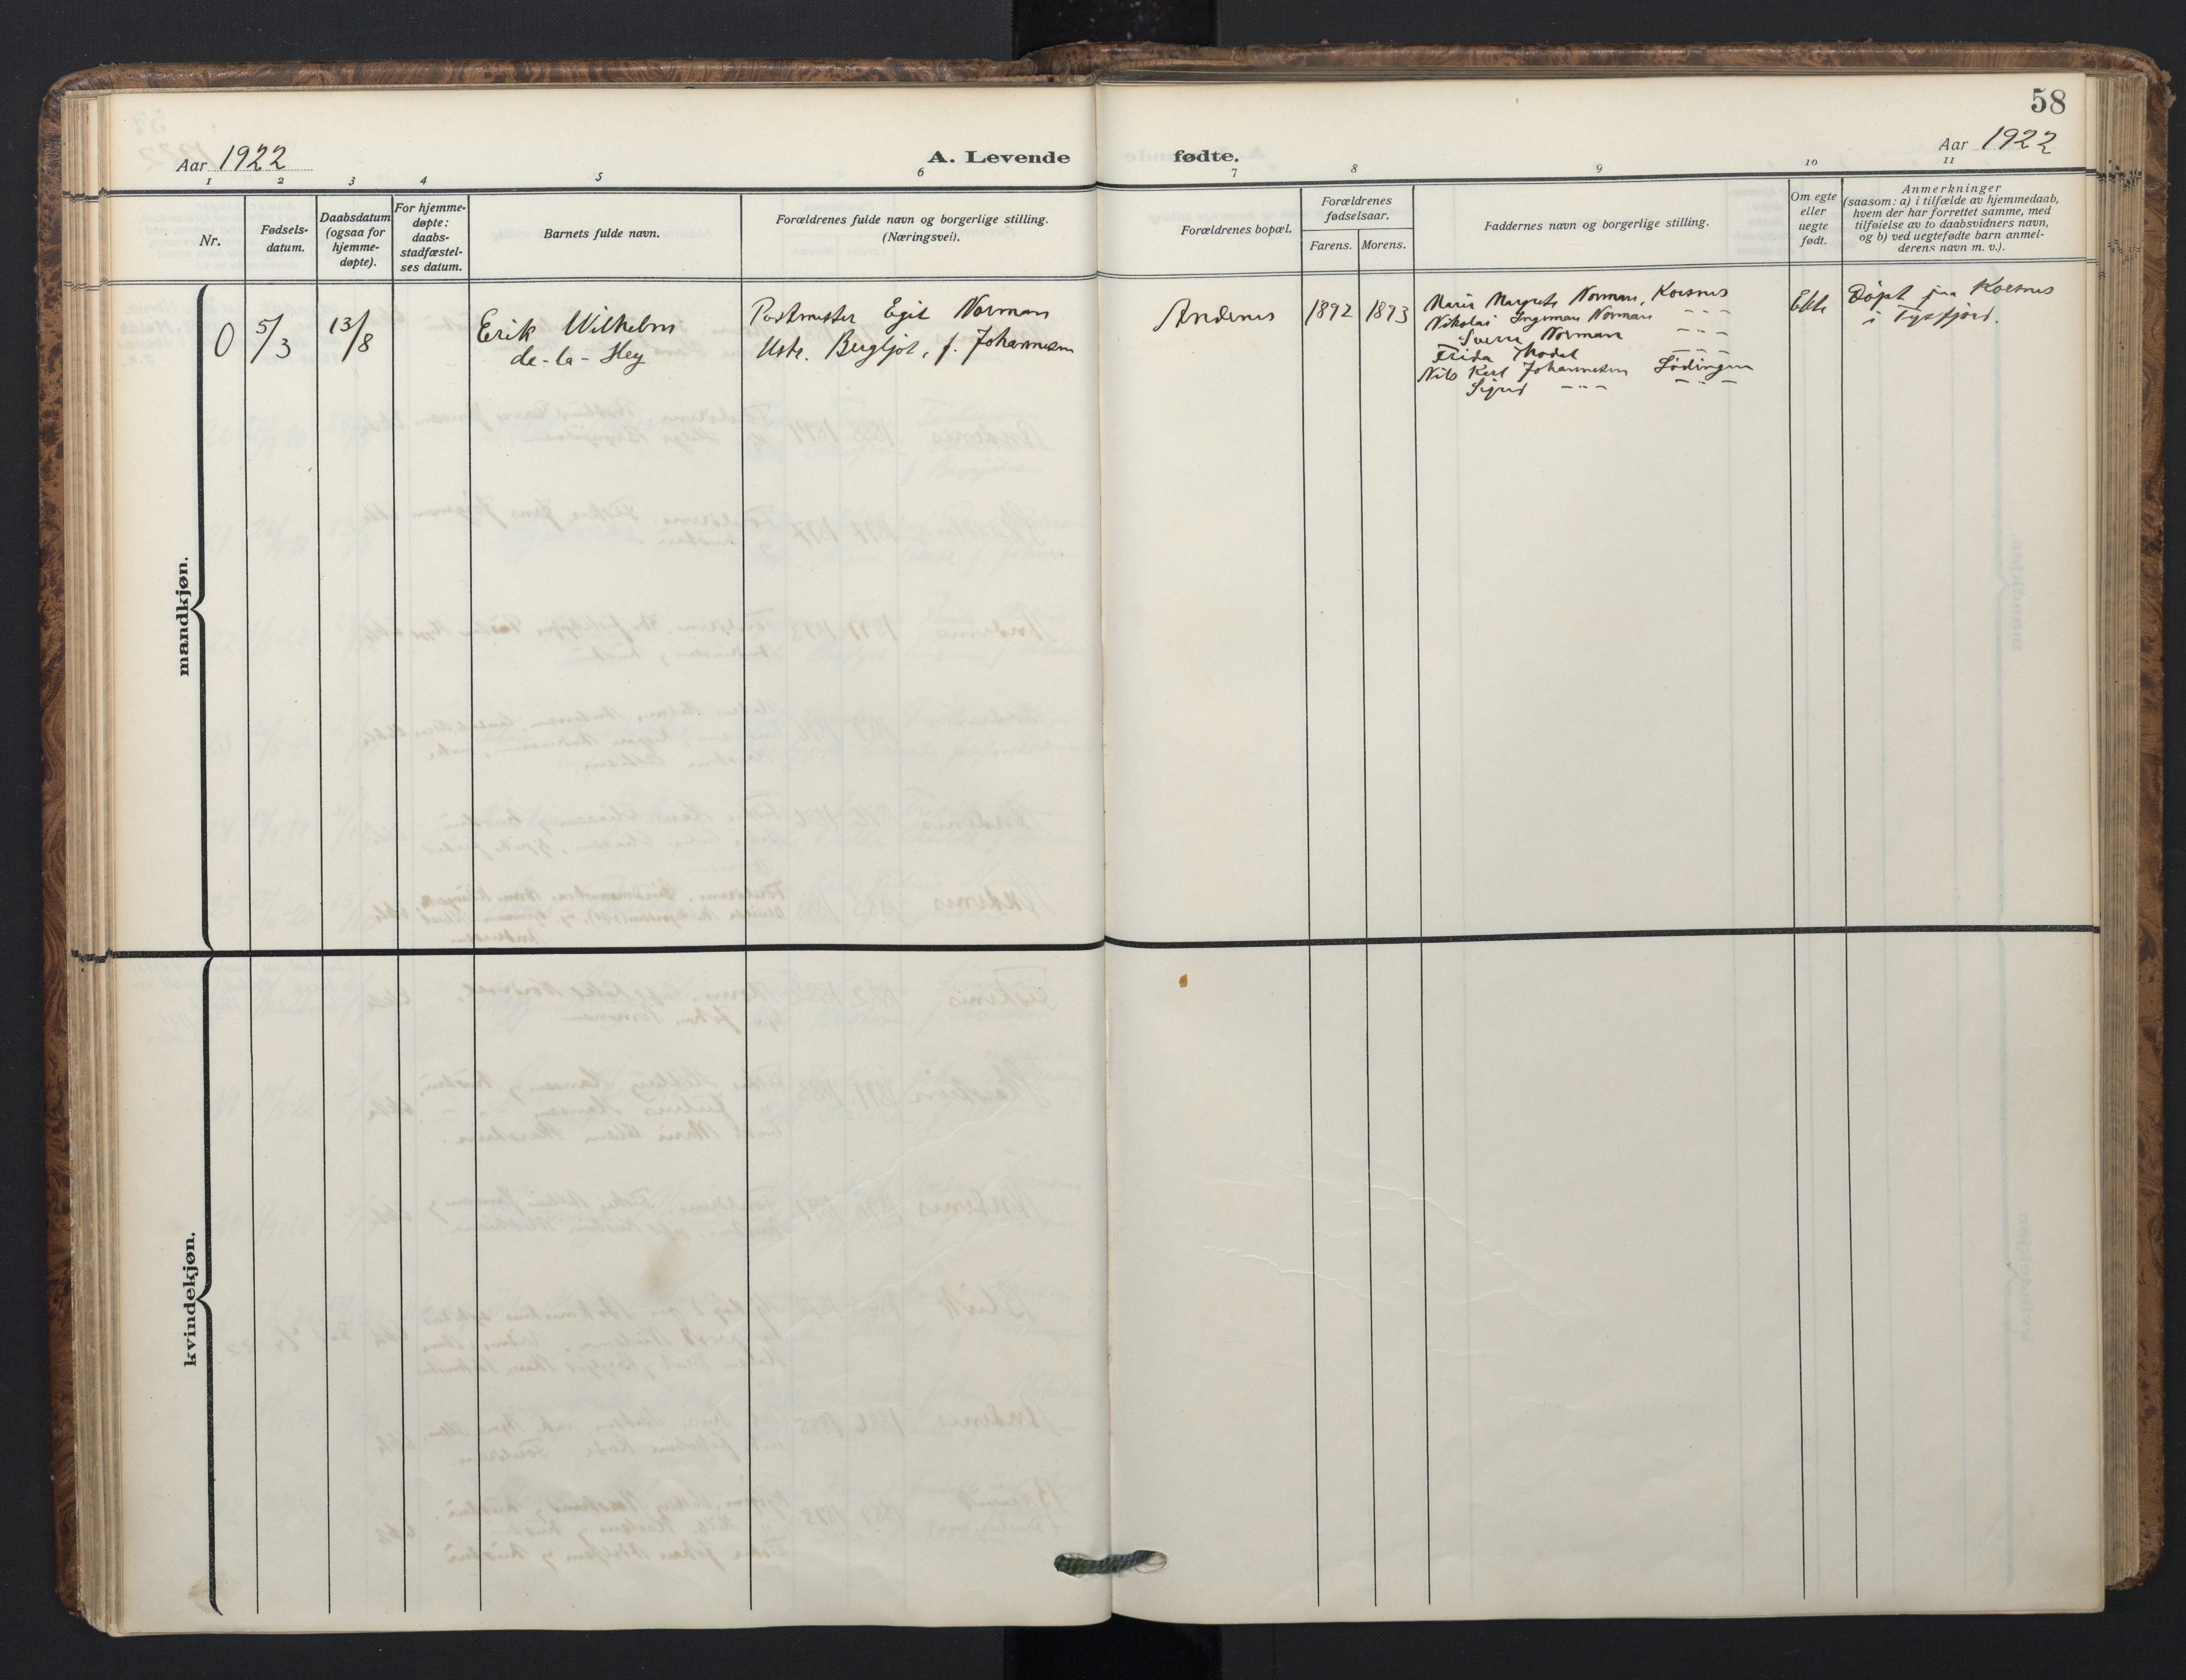 58
Aar 1922
A. Levende fødte.
Aar 1922
1 2 3 4 5 6 7 8 9 10 11
Nr.
Fødsels-
datum.
Daabsdatum
(ogsaa for
hjemme-
døpte).
For hjemme-
døpte:
daabs-
stadfæstel-
ses datum.
Barnets fulde navn.
Forældrenes fulde navn og borgerlige stilling.
(Næringsvei).
Forældrenes bopæl.
Forældrenes
fødselsaar.
Farens. Morens.
Faddernes navn og borgerlige stilling.
Om egte
eller
uegte
født.
Anmerkninger
(saasom: a) i tilfælde av hjemmedaab,
hvem der har forrettet samme, med
tilføielse av to daabsvidners navn,
og b) ved uegtefødte barn anmel-
derens navn m. v.).
mandkjøn.
0
5/3
13/8
Erik Wilhelm
de-la-Hey
Postmester Egil Norman
Ustr. Bergljot, f. Johannesen
Andenes
1892
1893
Marie Margrete Norman, Korsnes
Nikolai Ingeman Norman -"-
Sverre Norman -"-
Frida Thodal -"-
Nils Karl Johannesen Lødingen
Sigrid -"- -"-
Ekte
Døpt paa Korsnes
i Tysfjord.
kvindekjøn.